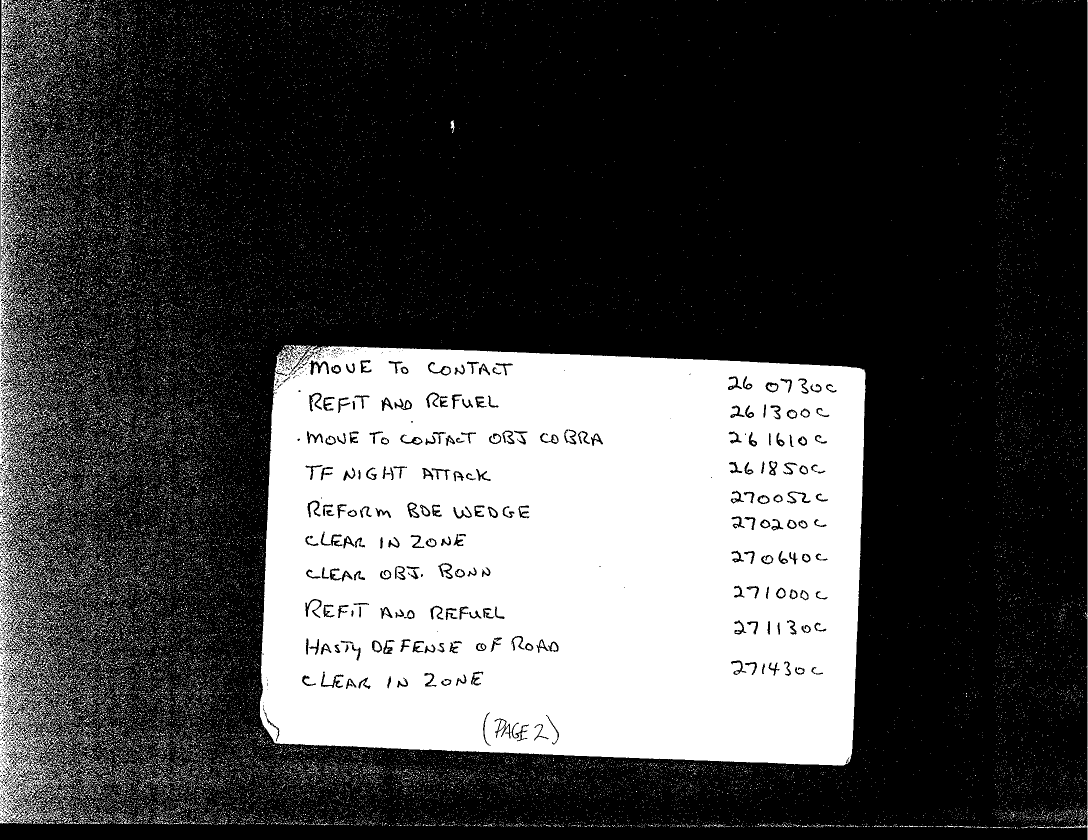 MOVE TO CONTACT 26 0730C
REFIT AND REFUEL 261300C
MOVE TO CONTACT OBJ COBRA 261610C
TF NIGHT ATTACK 261850C
REFORM BDE WEDGE 270052C
CLEAR IN ZONE 270200C
CLEAR OBJ. BONN 270640C
REFIT AND REFUEL 271000C
HASTY DEFENSE OF ROAD 271130C
CLEAR IN ZONE 271430C
(PAGE 2)